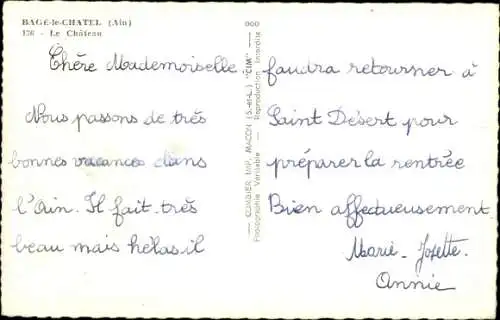 BAGÉ-le-CHATEL (Ain)
176 - Le Château
Chère Mademoiselle.
Nous passons de très
bonnes vacances dans
l'Ain. Il fait très
beau mais hélas il
000
COMBIER IMP. MACON (S.-et-L.) "CIM"
Photographie Véritable - Reproduction Interdite
faudra retourner à
Saint Désert pour
préparer la rentrée
Bien affectueusement
Marie-Josette.
Annie